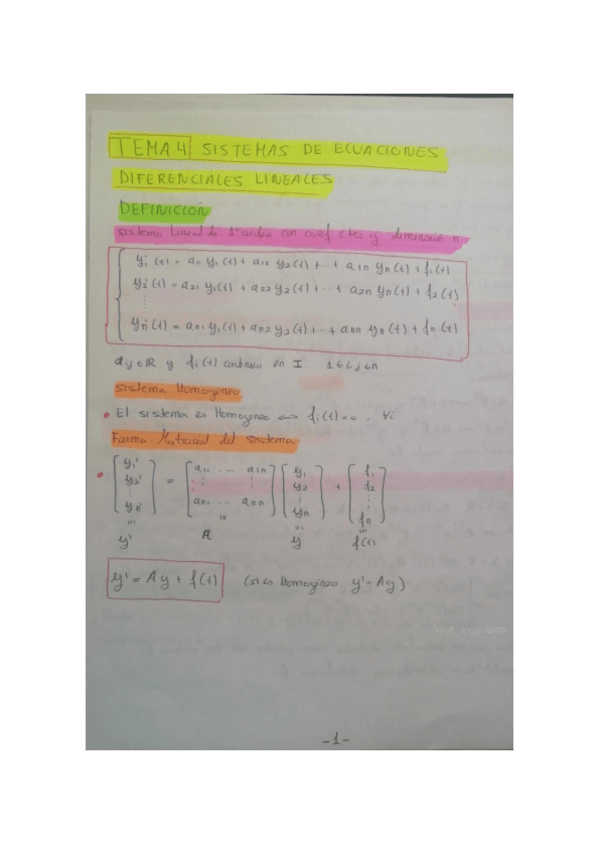 TEMA 4: SISTEMAS DE ECUACIONES
DIFERENCIALES LINEALES
DEFINICIÓN
sistema lineal de 1er orden con coef ctes y dimensión n
y1'(t) = a11 y1(t) + a12 y2(t) + ... + a1n yn(t) + f1(t)
y2'(t) = a21 y1(t) + a22 y2(t) + ... + a2n yn(t) + f2(t)
⋮
yn'(t) = an1 y1(t) + an2 y2(t) + ... + ann yn(t) + fn(t)
aij ∈ R y fi(t) continua en I. 1≤i,j≤n
sistema Homogeneo
• El sistema es Homogeneo ⇔ fi(t)=0, ∀i
Forma Matricial del sistema
• [y1' y2' ⋮ yn'] = [a11 ... a1n ⋮ ⋮ an1 ... ann] [y1 y2 ⋮ yn] + [f1 f2 ⋮ fn]
y' A y f(t)
y' = Ay + f(t) (si es Homogéneo y'=Ay)
-1-